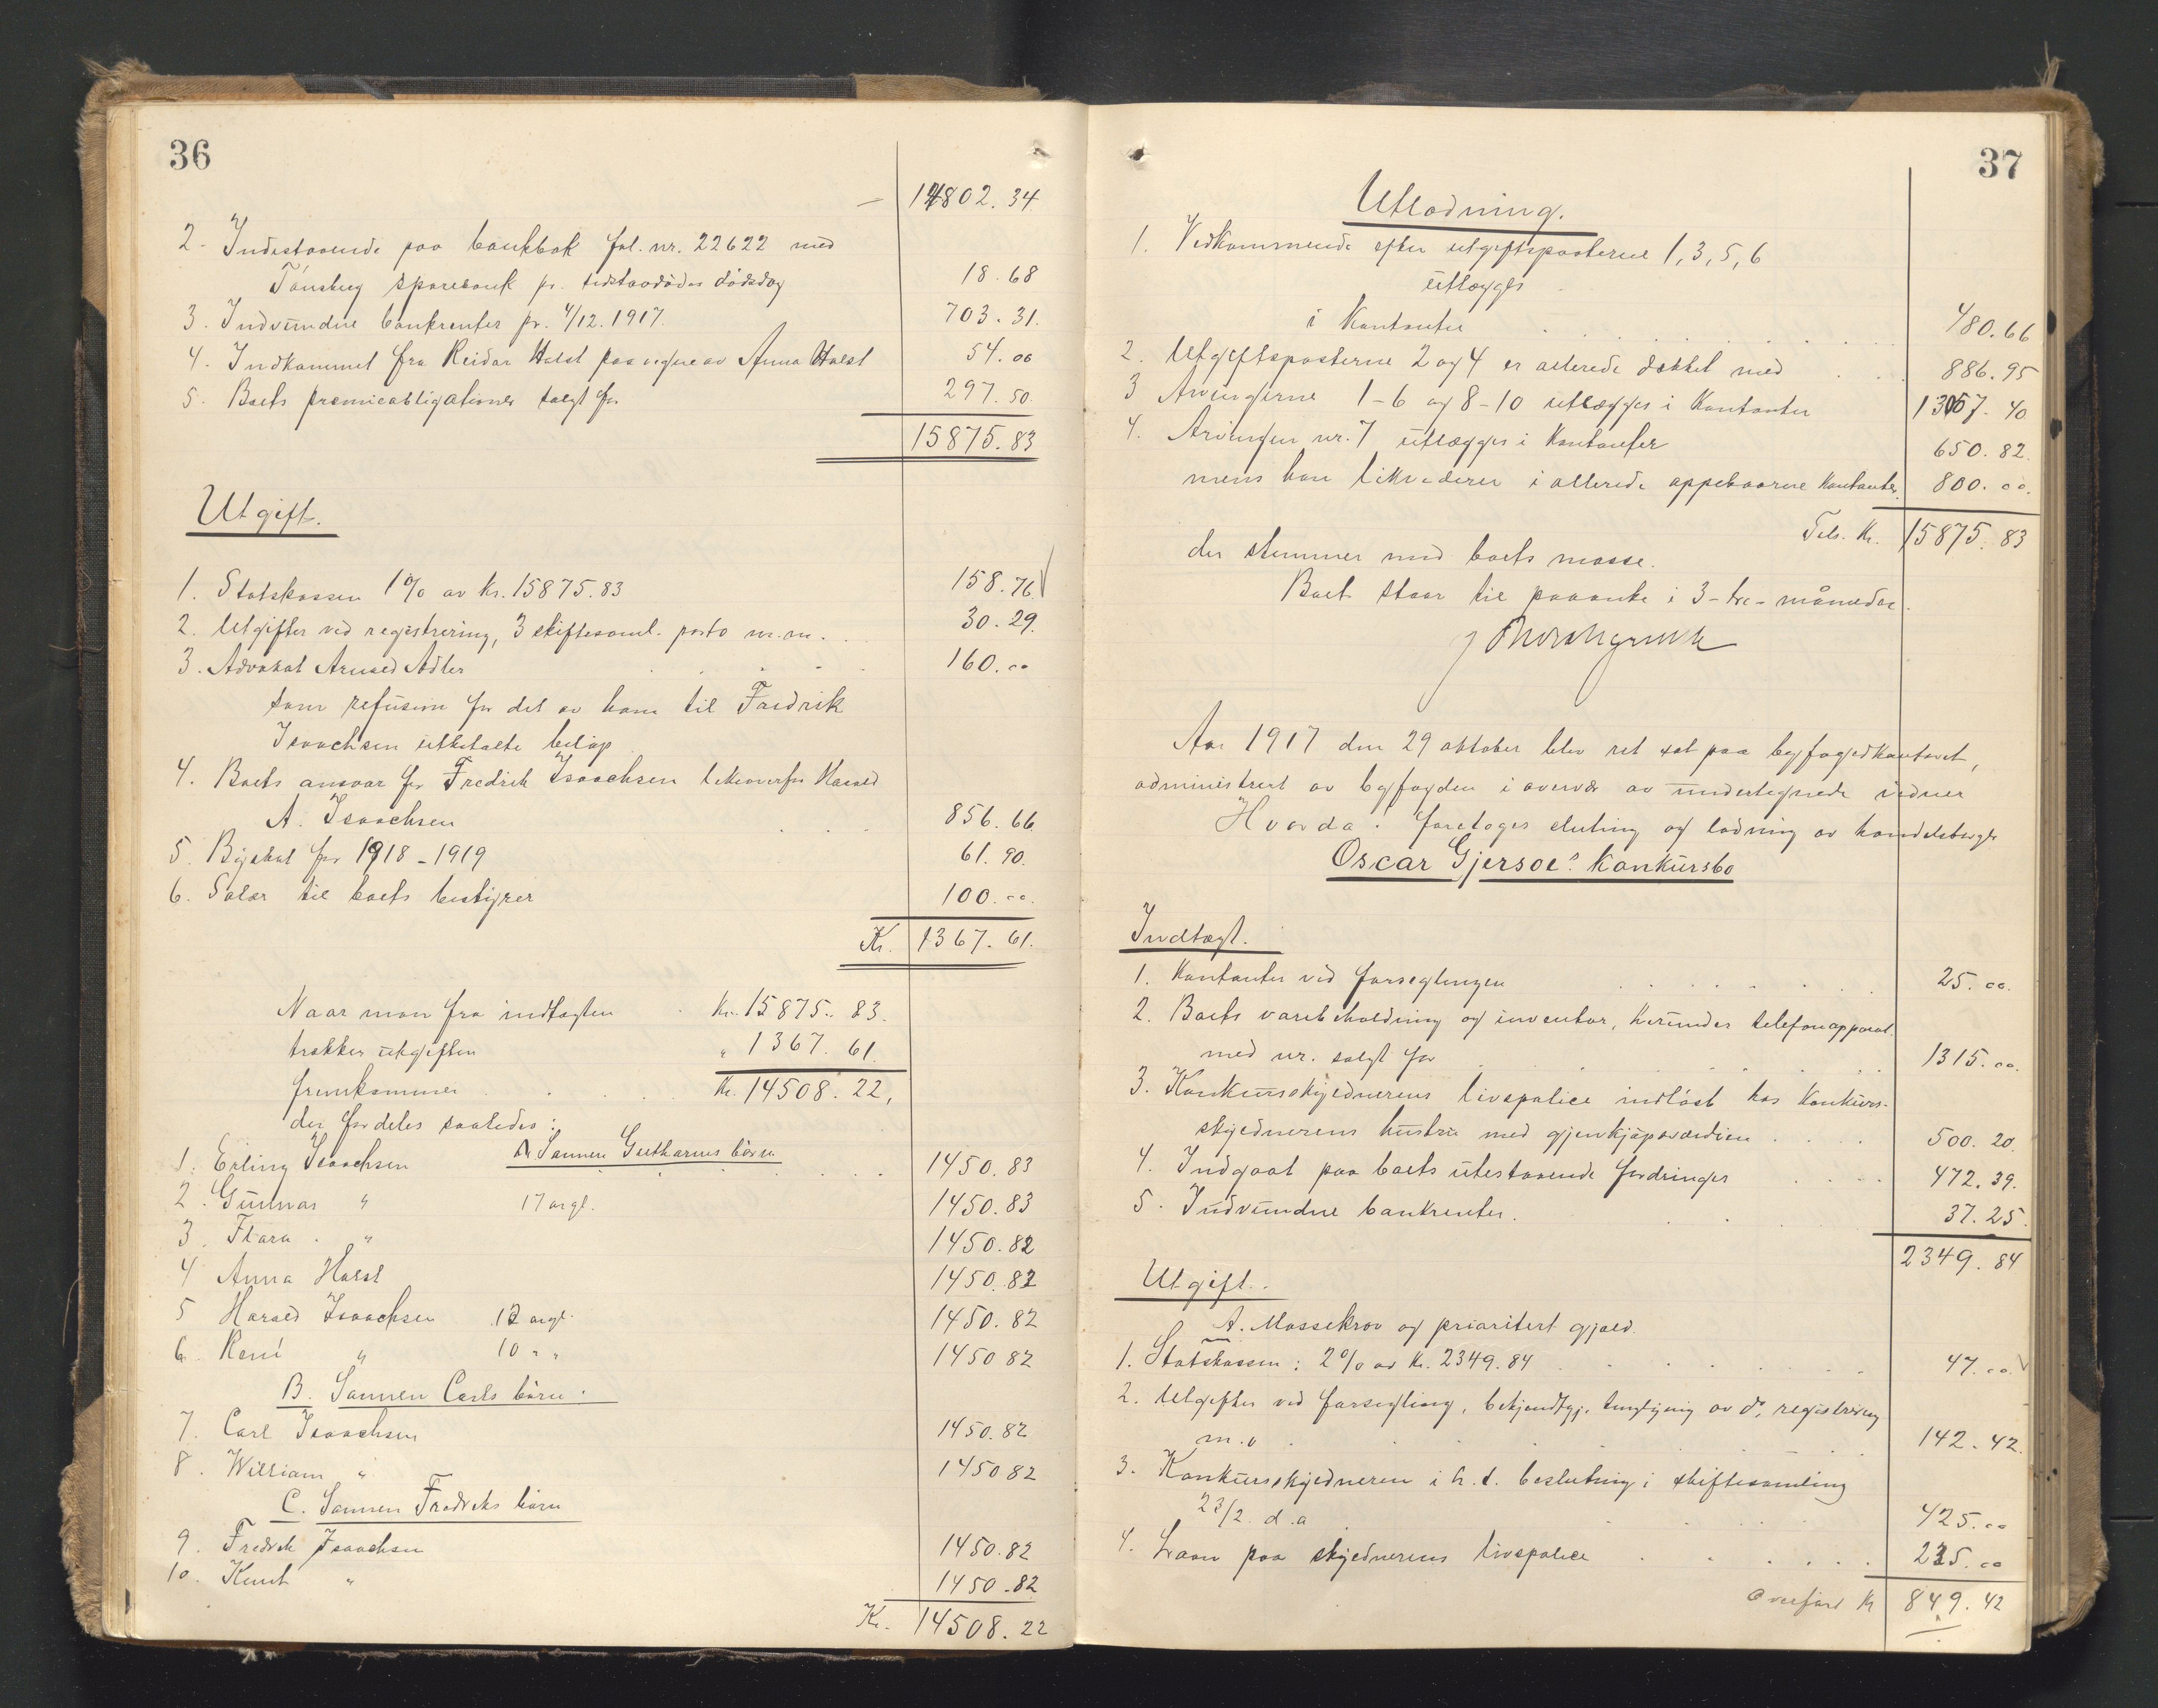 36
14802.34
2. Indestaaende paa bankbok fol. nr. 22622 med
Tønsberg sparebank pr. dødsdag 18.68
3. Indvundne bankrenter pr. 4/12. 1917. 703.31.
4. Indkommet fra Reidar Holst paa vegne av Anna Holst 54.00
5. Boets premieobligationer solgt for 297.50.
15875.83
Utgift.
1. Statskassen 1% av kr. 15875.83 158.76
2. Utgifter ved registrering, 3 skiftesaml. porto m.m. 30.29.
3. Advokat Adler 160.00
som refusion for det av ham til Fredrik
Isaachsen utbetalte beløp
4. Boets ansvar for Fredrik Isaachsen likeoverfor Harald
A. Isaachsen 856.66
5. Byskat for 1918-1919 61.90.
6. Salær til boets bestyrer 100.00.
Kr. 1367.61.
Naar man fra indtægten kr. 15875.83.
trækker utgiften " 1367.61.
fremkommer kr. 14508.22,
der fordeles saaledes:
A. Sønnen børn
1. Erling Isaachsen 1450.83
2. Gunnar " 17 argl. 1450.83
3. " 1450.82
4 Anna Holst 1450.82
5 Harald Isaachsen 12 argl. 1450.82
6. René " 10 " " 1450 82
B. Sønnen Carls børn.
7. Carl Isaachsen 1450.82
8. William " 1450 82
C. Sønnen Fredriks børn
9. Fredrik Isaachsen 1450.82
10. Knut " 1450.82
Kr. 14508.22
37
Utlodning.
1. Vedkommende efter utgiftsposterne 1, 3, 5, 6
utlægges
i kontanter 480.66
2. Utgiftsposterne 2 og 4 er allerede dækket med 886.95
3 Arvingerne 1-6 og 8-10 utlægges i kontanter 13057.40
4. Arvingen nr. 7 utlægges i kontanter 650.82.
mens han likviderer i allerede oppebaarne kontanter 800.00.
Tils. kr. 15875.83
der stemmer med boets masse.
Boet staar til paaanke i 3-tre-måneder.
Aar 1917 den 29 oktober blev ret sat paa byfogedkontoret,
administrert av byfogden i overvær av undertegnede vidner
Hvorda: foretoges slutning og lodning av handelsborger
Oscar Gjersøe's konkursbo
Indtægt.
1. Kontanter ved forseglingen 25.00.
2. Boets varebeholdning og inventar, herunder telefonapparat
med nr. solgt for 1315.00.
3. Konkursskyldnerens livspolice indløst hos konkurs-
skyldnerens hustru med gjenkjøpsværdien 500.20.
4. Indgaat paa boets utestaaende fordringer 472.39.
5. Indvundne bankrenter. 37.25.
2349.84
Utgift.
A. Massekrav og prioritert gjæld.
1. Statskassen: 2% av kr. 2349.84 47.00.
2. Utgifter ved forsegling, bekjendtgj. tinglysning av do, registrering
m.v 142.42.
3. Konkursskyldneren i h.t. beslutning i skiftesamling
23/2 d.a 425.00
4. Laan paa skyldnerens livspolice 235.00
Overført kr 849.42